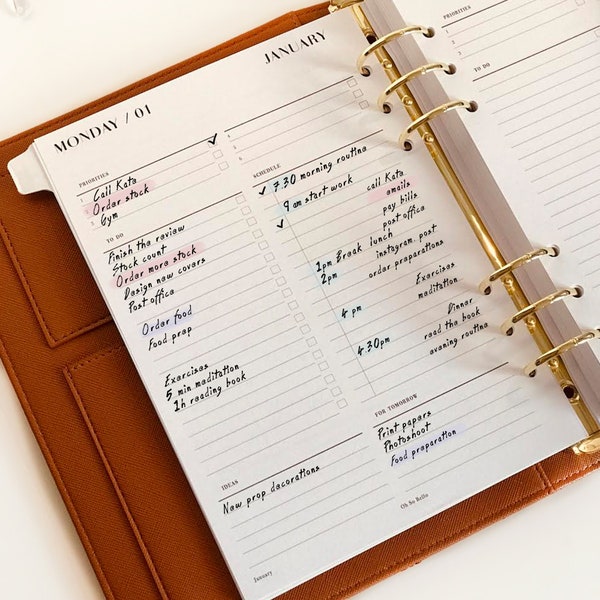 JANUARY
MONDAY / 01
PRIORITIES
1 Call Kate
2 Order stock
3 Gym
4
5
6
TO DO
Finish the review
Stock count
Order more stock
Design new covers
Post office
Order food
Food prep
Exercises
5 min meditation
1h reading book
SCHEDULE
7.30 morning routine
9 am start work
call Kate
emails
pay bills
post office
1pm Break lunch
2pm instagram post
order preparations
4 pm Exercises
meditation
4.30pm Dinner
read the book
evening routine
FOR TOMORROW
Print papers
Photoshoot
Food preparation
IDEAS
New prop decorations
January
Oh So Bella
PRIORITIES
1
2
3
TO DO